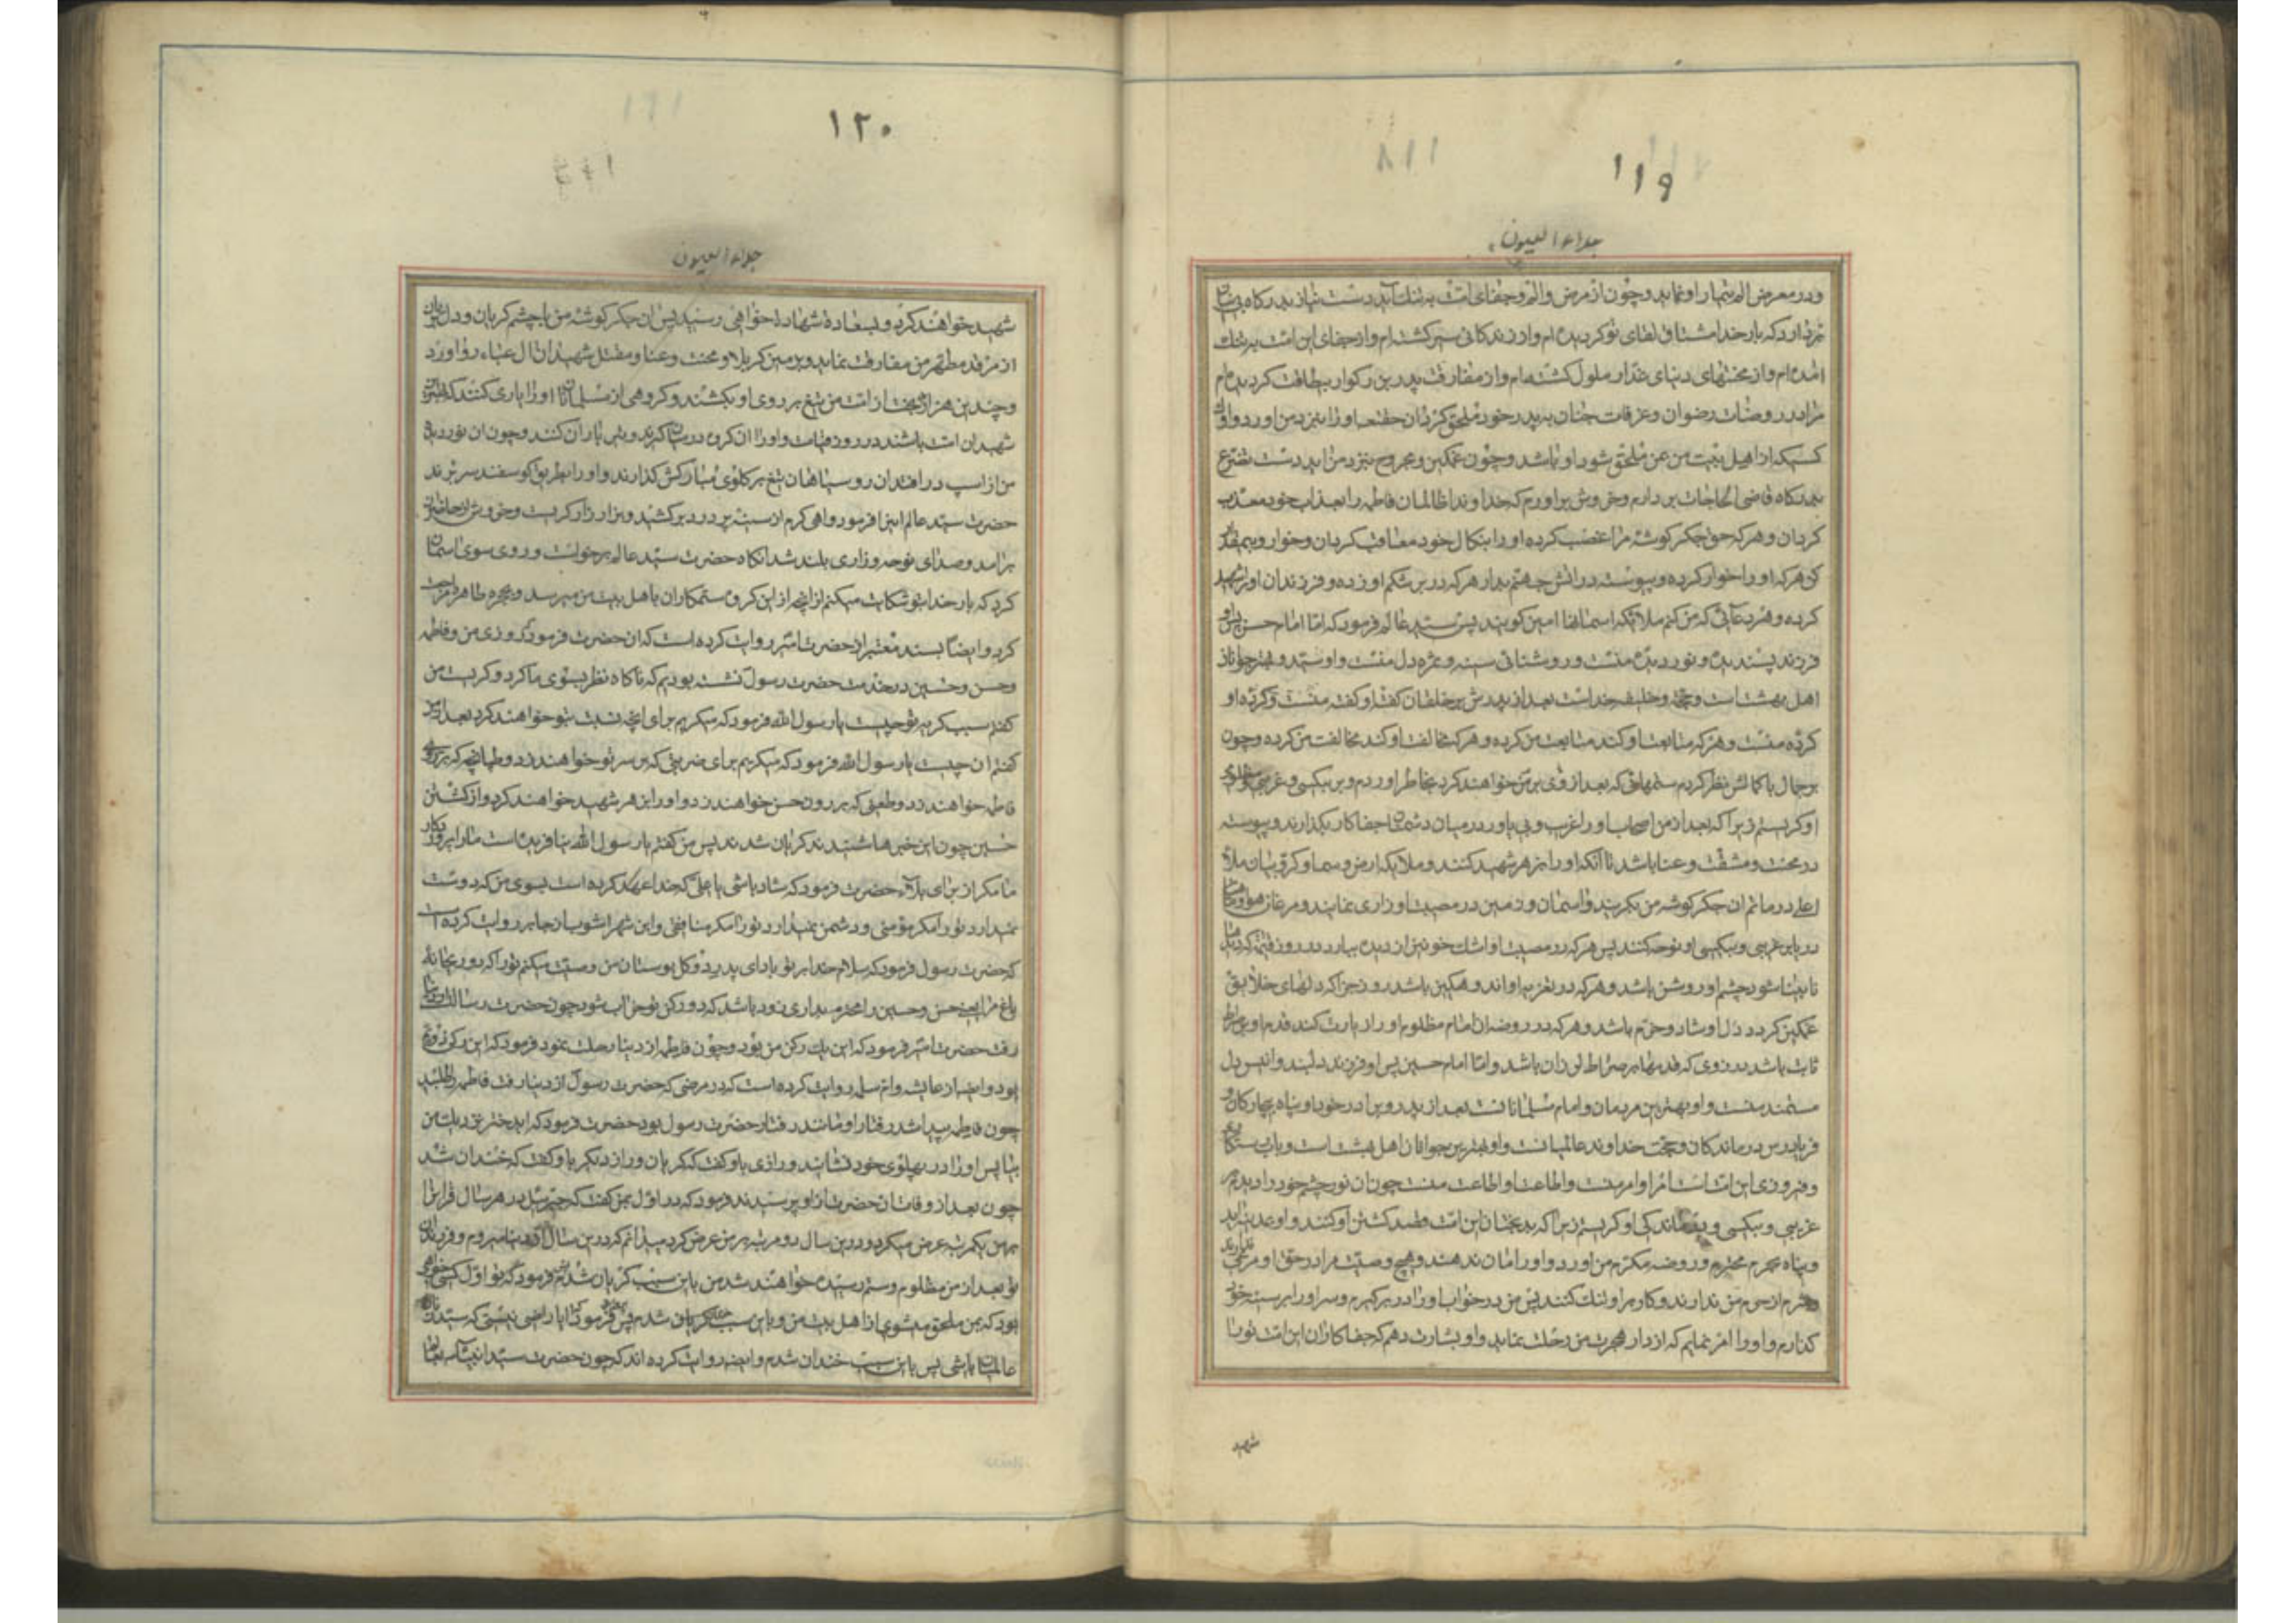 ۱۱۹
۱۱۸
جلاء العیون
و در معرض الم تیمار او نماید و چون از مرض و الم و جفای امت به تنک آید دست نیاز بدرکاه بی نیاز
بردارد که بار خدا مشتاق لقای تو کردیده ام و از زندکانی سیر کشته ام و از جفای این امت به تنک
امده ام و از محنتهای دنیای غدار ملول کشته ام و از مفارقت پدر بزرکوار بیطاقت کردیده ام
مرا در روضات رضوان و غرفات جنان به پدر خود ملحق کردان حقتعا او را بنزد من اورد و اول
کسیکه از اهل بیت من بمن ملحق شود او باشد و چون غمکین و مجروح بنزد من اید دست تضرع
بدرکاه قاضی الحاجات بر دارم و خروش براورم که خداوندا ظالمان فاطمه را بعذاب خود معذب
کردان و هر که حق جکر کوشه مرا غصب کرده او را بنکال خود معاقب کردان و خوار و بیمقدار
کن هر که او را خوار کرده و پیوسته در اتش جهنم بدار هر که در بر شکم او زده و فرزندان او را شهید
کرده و هر دعائی که من کنم ملائکه اسمانها امین کویند پس سید عالم فرمود که اما امام حسن پس او
فرزند پسندیده و نور دیده منست و روشنائی سینه و ثمره دل منست و او سید و بهتر جوانان
اهل بهشت است و حجت و خلیفه خداست بعد از پدرش بر خلقان کفته او کفته منست و کرده او
کرده منست و هر که متابعت او کند متابعت من کرده و هر که مخالفت او کند مخالفت من کرده و چون
بر جمال با کمالش نظر کردم ستمهائی که بعد از وی بر من خواهند کرد بخاطر اوردم و بر بیکسی و غریبی و مظلومی
او کریستم زیرا که بعد از من اصحاب او را غریب و بی یاور در میان دشمنان جفا کار بکذارند و پیوسته
در محنت و مشقت و عنا باشد تا انکه او را بزهر شهید کنند و ملایکه ارض و سما و کروبیان ملأ
اعلی در ماتم ان جکر کوشه من بکریند و اسمان و زمین در مصیبت او زاری نمایند و مرغان هوا و ماهیان
دریا بر غریبی و بیکسی او نوحه کنند پس هر که در مصیبت او اشک خونین از دیده ببارد در روز قیامت که دیدها
نابینا شود چشم او روشن باشد و هر که در تعزیه او اندوهکین باشد روز جزا که دلهای خلایق
غمکین کردد دل او شاد و خرم باشد و هر که در روضه ان امام مظلوم او را زیارت کند قدم او بر صراط
ثابت باشد در روزی که قدمها بر صراط لرزان باشد و اما امام حسین پس او فرزند دلبند و انیس دل
مستمند منست و او بهترین مردمان و امام مسلمانانست بعد از پدر و برادر خود و پناه بیچارکان و
فریادرس درماندکان و حجت خداوند عالمیانست و او بهترین جوانان اهل بهشت است و باب رستکاری
و فیروزی این امت است امر او امر منست و اطاعت او اطاعت منست چون ان نور چشم خود را دیدم بر
غریبی و بیکسی و او کریستم زیرا که بدبختان این امت قصد کشتن او کنند و او
و پناه بحرم محترم و روضه مکرم من اورد و او را امان ندهند و هیچ وصیت مرا در حق او مرعی ندارند
از حرم من ندارند و کار بر او تنک کنند پس من در خواب او را در بر کیرم و سر او را بر سینه خود
کذارم و او را امر نمایم که از دار هجرت من رحلت نماید و او را بشارت دهم که جفا کاران این امت تو را
شهید
۱۲۰
جلاء العیون
شهید خواهند کرد و بسعادة شهادة خواهی رسید پس ان جکر کوشه من با چشم کریان و دل بریان
از مرقد مطهر من مفارقت نماید و بزمین کربلا و محنت و عنا و مقتل شهیدان ال عبا رو اورد
و چندین هزار بدبخت از امت من تیغ بر روی او بکشند و کروهی از مسلمانان او را یاری کنند که بهترین
شهیدان امت باشند در روز قیامت و او را ان کروه در میان کیرند و تیر باران کنند و چون ان نور دیده
من از اسب در افتد ان روسیاهان تیغ بر کلوی مبارکش کذارند و او را بطریق کوسفند سر برند
حضرت سید عالم اینرا فرمود و اهی کرم از سینه پر درد بر کشید و بزار زار کریست و خروش از حاضران
برامد و صدای نوحه و زاری بلند شد انکاه حضرت سید عالم برخواست و روی سوی اسمان
کرد که بار خدا بتو شکایت میکنم از انچه از این کروه ستمکاران باهل بیت من میرسد و بحجره طاهره مراجعت
کرد و ایضاً بسند معتبر از حضرت امیر روایت کرده است که ان حضرت فرمود که روزی من و فاطمه
و حسن و حسین در خدمت حضرت رسول نشسته بودیم که ناکاه نظر بسوی ما کرد و کریست من
کفتم سبب کریه تو چیست یا رسول الله فرمود که میکریم برای انچه نسبت بتو خواهند کرد بعد از من
کفتم ان چیست یا رسول الله فرمود که میکریم برای ضربتی که بر سر تو خواهند زد و طپانچه که بر روی
فاطمه خواهند زد و طعنی که بر ران حسن خواهند زد و او را بزهر شهید خواهند کرد و از کشتن
حسین چون این خبرها شنیدند کریان شدند پس من کفتم یا رسول الله نیافریده است ما را پروردکار
ما مکر از برای بلا حضرت فرمود که شاد باشی یا علی که خدا عهد کرده است بسوی من که دوست
نمیدارد تو را مکر مؤمنی و دشمن نمیدارد تو را مکر منافقی و ابن شهر اشوب از جابر روایت کرده است
که حضرت رسول فرمود که سلام خدا بر تو باد ای پدر دو کل بوستان من وصیت میکنم تو را که دو ریحانه
باغ مرا یعنی حسن و حسین را محترم بداری زود باشد که دو رکن تو خراب شود چون حضرت رسالت از دنیا
رفت حضرت امیر فرمود که این یک رکن من بود و چون فاطمه از دنیا رحلت نمود فرمود که این رکن دویم
بود و ایضا از عایشه و ام سلمه روایت کرده است که در مرضی که حضرت رسول از دنیا رفت فاطمه را طلبید
چون فاطمه پیدا شد رفتار او مانند رفتار حضرت رسول بود حضرت فرمود که ای دختر نزدیک من
بیا پس او را در پهلوی خود نشانید و رازی باو کفت که کریان و راز دیکر باو کفت که خندان شد
چون بعد از وفات ان حضرت از او پرسیدند فرمود که در اول بمن کفت که جبرئیل در هر سال قران را
بر من یکمرتبه عرض میکرد و در این سال دو مرتبه بر من عرض کرد میدانم که در این سال از دنیا میروم و فرزندان
تو بعد از من مظلوم و ستم رسیده خواهند شد من باین سبب کریان شدم پس فرمود که تو اول کسی خواهی
بود که بمن ملحق میشوی از اهل بیت من و باین سبب کریان شدم پس فرمود که ایا راضی نیستی که سیده زنان
عالمیان باشی پس باین سبب خندان شدم و ایضا روایت کرده اند که چون حضرت سید انبیا